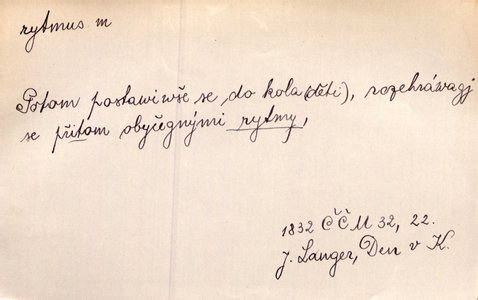 rytmus m
Potom postawiwše se do kola (děti), rozehráwagj
se přitom obyčegnými rytmy,
1832 ČČM 32, 22.
J. Langer, Den v K.